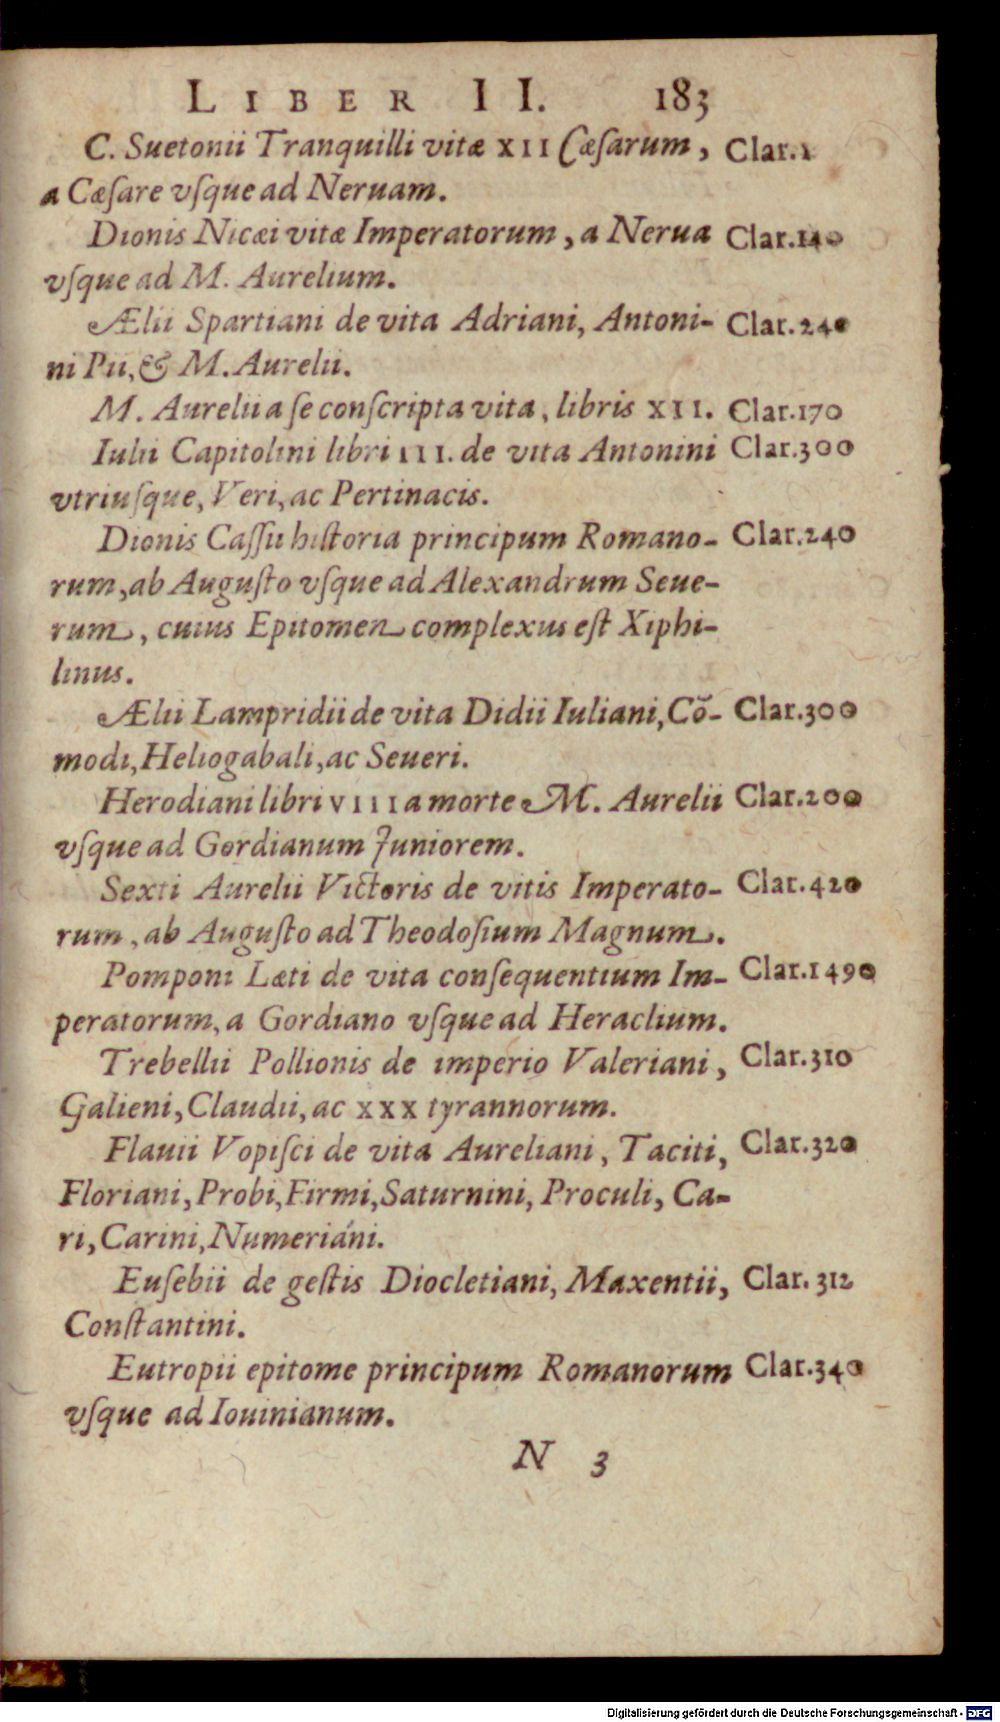 LIBER II. 183
C. Suetonii Tranquilli vitæ XII Cæſarum, Clar.1
a Cæſare vſque ad Neruam.
Dionis Nicæi vitæ Imperatorum, a Nerua Clar.140
vſque ad M. Aurelium.
Ælii Spartiani de vita Adriani, Antoni- Clar.240
ni Pii, & M. Aurelii.
M. Aurelii a ſe conſcripta vita, libris XII. Clar.170
Iulii Capitolini libri III. de vita Antonini Clar.300
vtriuſque, Veri, ac Pertinacis.
Dionis Caſſii hiſtoria principum Romano- Clar.240
rum, ab Auguſto vſque ad Alexandrum Seue-
rum, cuius Epitomen complexus eſt Xiphi-
linus.
Ælii Lampridii de vita Didii Iuliani, Cō- Clar.300
modi, Heliogabali, ac Seueri.
Herodiani libri VIII a morte M. Aurelii Clar.200
vſque ad Gordianum Juniorem.
Sexti Aurelii Victoris de vitis Imperato- Clar.420
rum, ab Auguſto ad Theodoſium Magnum.
Pomponi Læti de vita conſequentium Im- Clar.1490
peratorum, a Gordiano vſque ad Heraclium.
Trebellii Pollionis de imperio Valeriani, Clar.310
Galieni, Claudii, ac XXX tyrannorum.
Flauii Vopiſci de vita Aureliani, Taciti, Clar.320
Floriani, Probi, Firmi, Saturnini, Proculi, Ca-
ri, Carini, Numeriáni.
Euſebii de geſtis Diocletiani, Maxentii, Clar. 312
Conſtantini.
Eutropii epitome principum Romanorum Clar.340
vſque ad Iouinianum.
N 3
Digitalisierung gefördert durch die Deutsche Forschungsgemeinschaft - DFG